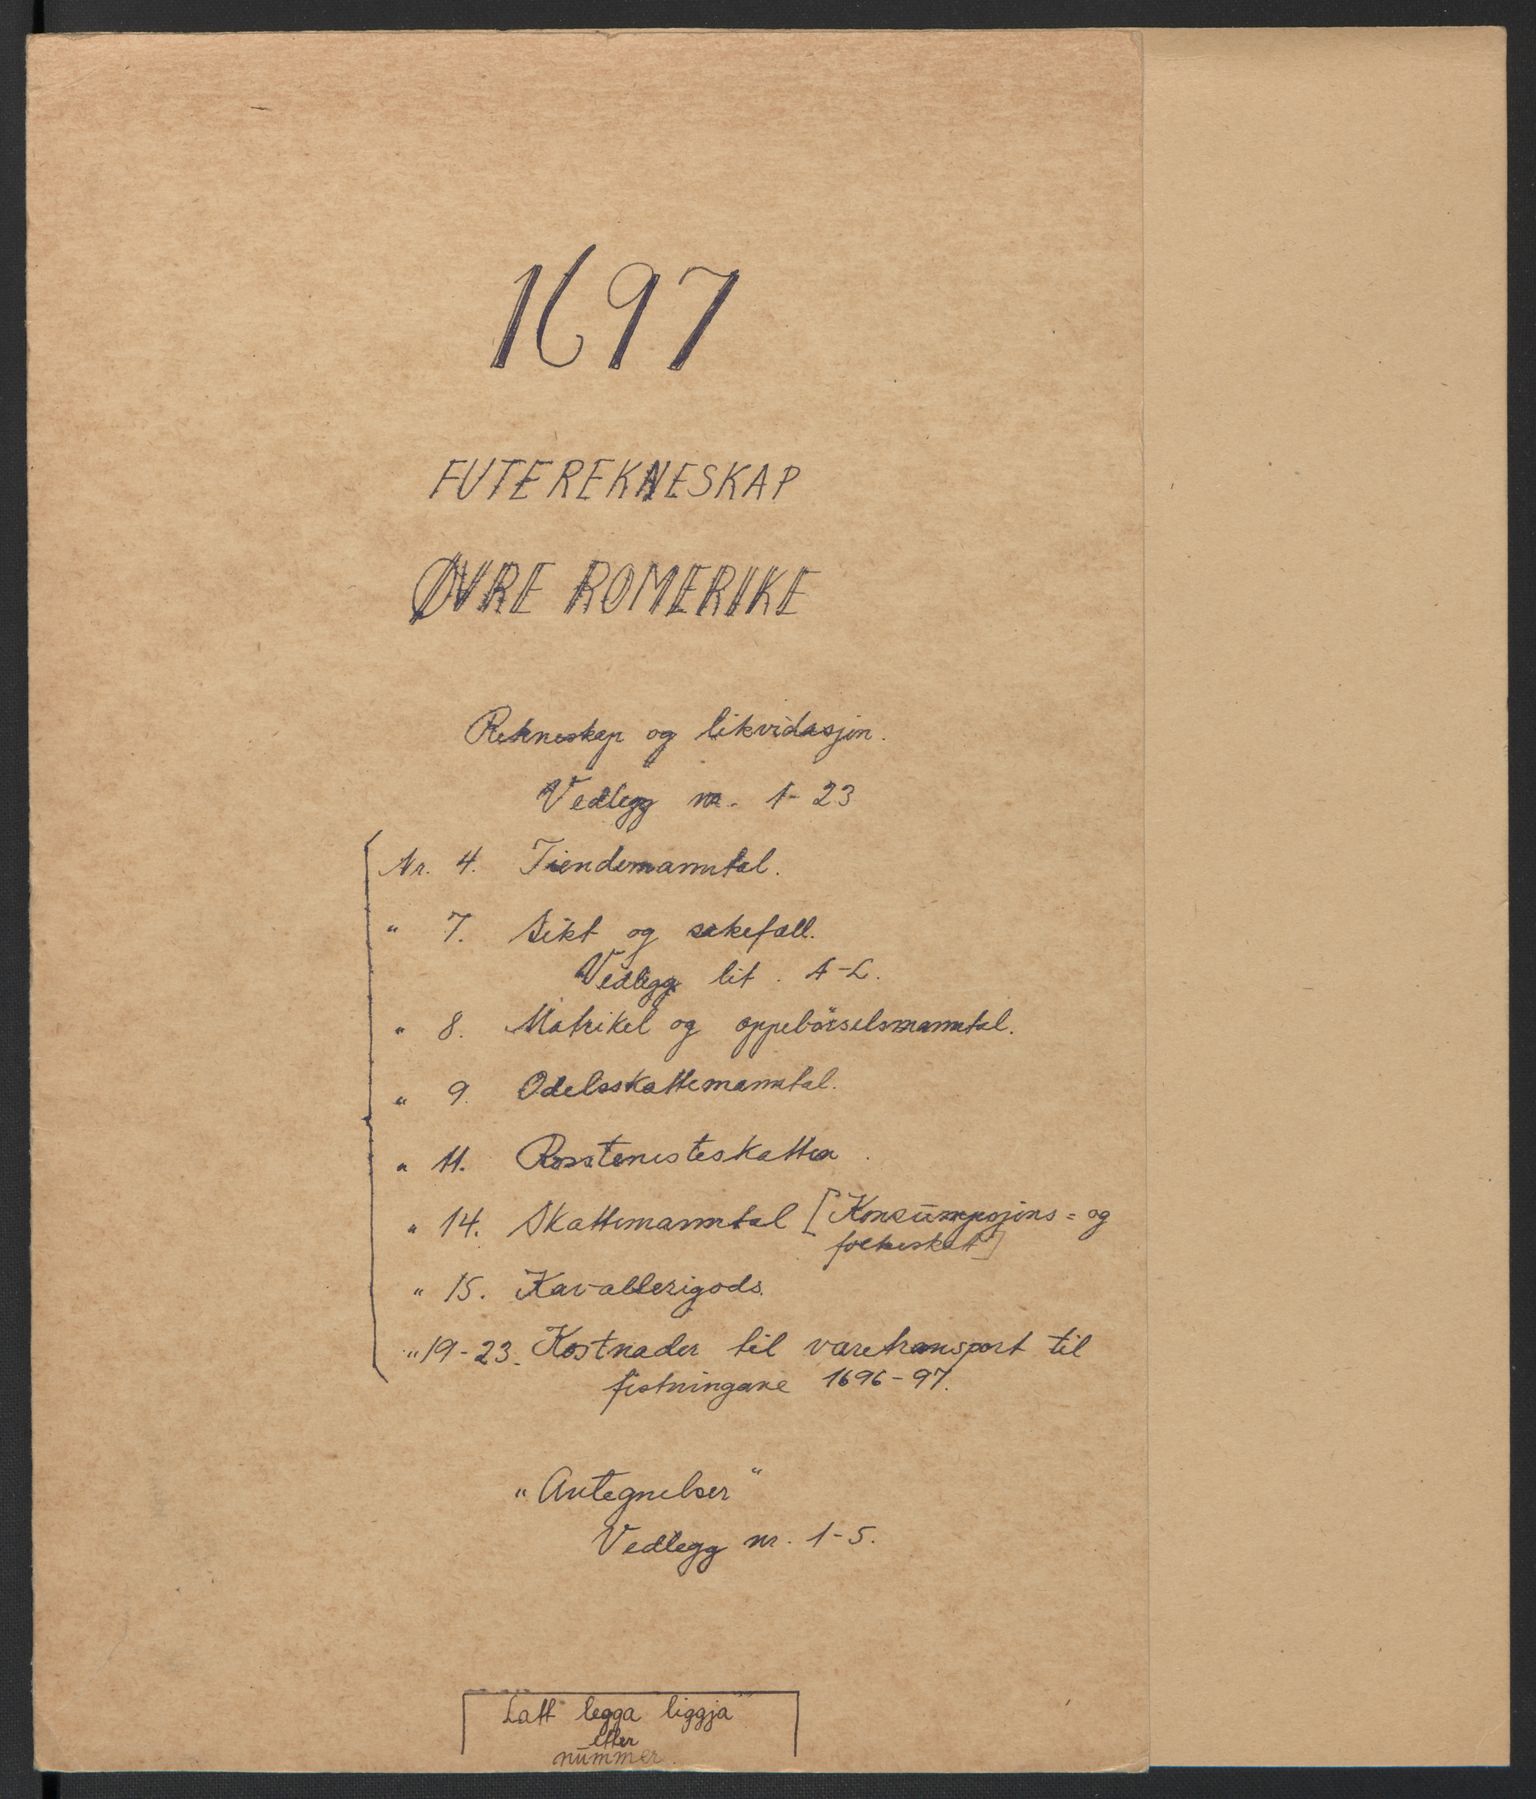 1697
FUTEREKNESKAP
ØVRE ROMERIKE
Rekneskap og likvidasjon.
Vedlegg nr. 1-23
Nr. 4. Tiendemanntal.
" 7. Sikt og sakefall.
Vedlegg lit. A-L.
" 8. Matrikel og oppebörselsmanntal.
" 9. Odelsskattemanntal.
" 11. Rosstenesteskatten.
" 14. Skattemanntal [Konsumpsjons= og
folkeskatt]
" 15. Kavallerigods.
" 19-23. Kostnader til varetransport til
festningane 1696-97.
"Antegnelser"
Vedlegg nr. 1-5.
Latt legga liggja
etter
nummer.